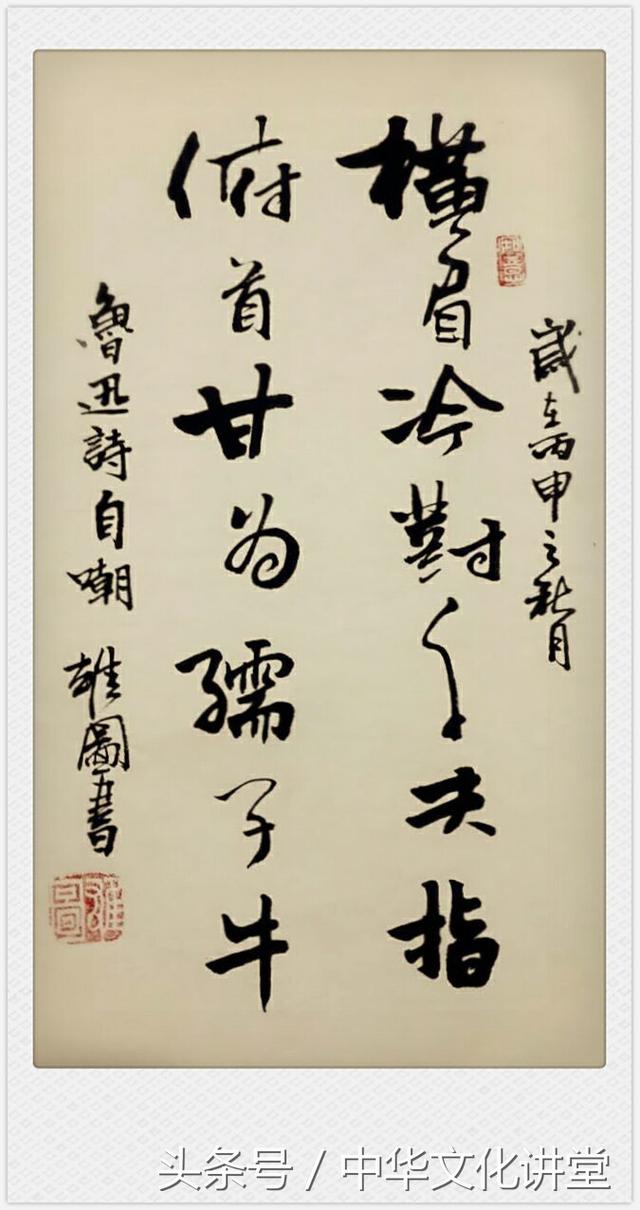 歲在丙申之秋月
橫眉冷對千夫指
俯首甘为孺子牛
魯迅詩自嘲 雄圖書
头条号 / 中华文化讲堂